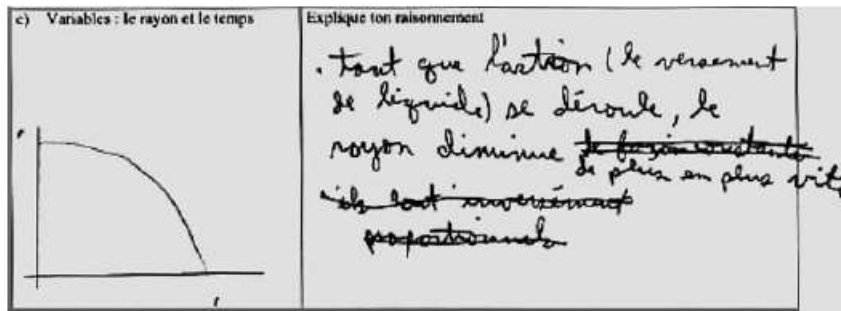 c) Variables : le rayon et le temps
Explique ton raisonnement
. tant que l'action (le versement
de liquide) se déroule, le
rayon diminue de façon constante
de plus en plus vite
ils sont inversément
proportionnels
r
t